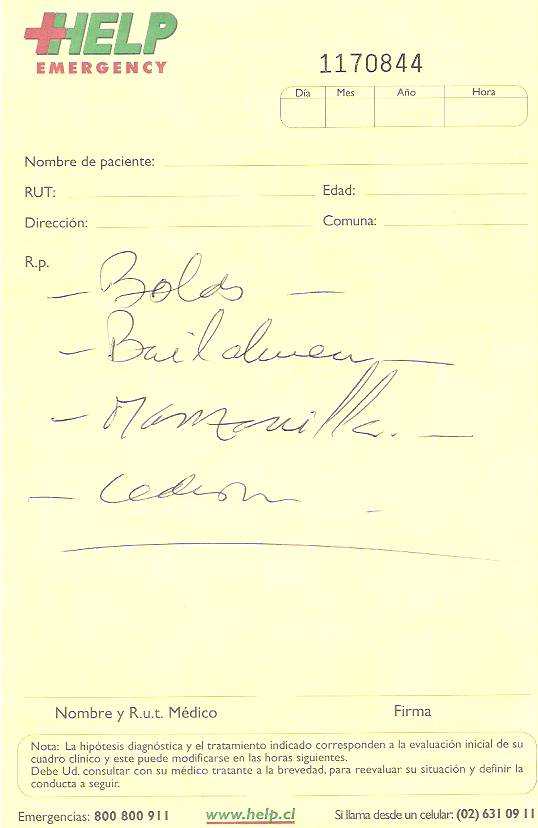 HELP
EMERGENCY
1170844
Día Mes Año Hora
Nombre de paciente:
RUT: Edad:
Dirección: Comuna:
R.p.
— Boldo —
— Bailahuen —
— Manzanilla. —
— Cedron -
Nombre y R.u.t. Médico Firma
Nota: La hipótesis diagnóstica y el tratamiento indicado corresponden a la evaluación inicial de su
cuadro clínico y este puede modificarse en las horas siguientes.
Debe Ud. consultar con su médico tratante a la brevedad, para reevaluar su situación y definir la
conducta a seguir.
Emergencias: 800 800 911 www.help.cl Si llama desde un celular: (02) 631 09 11